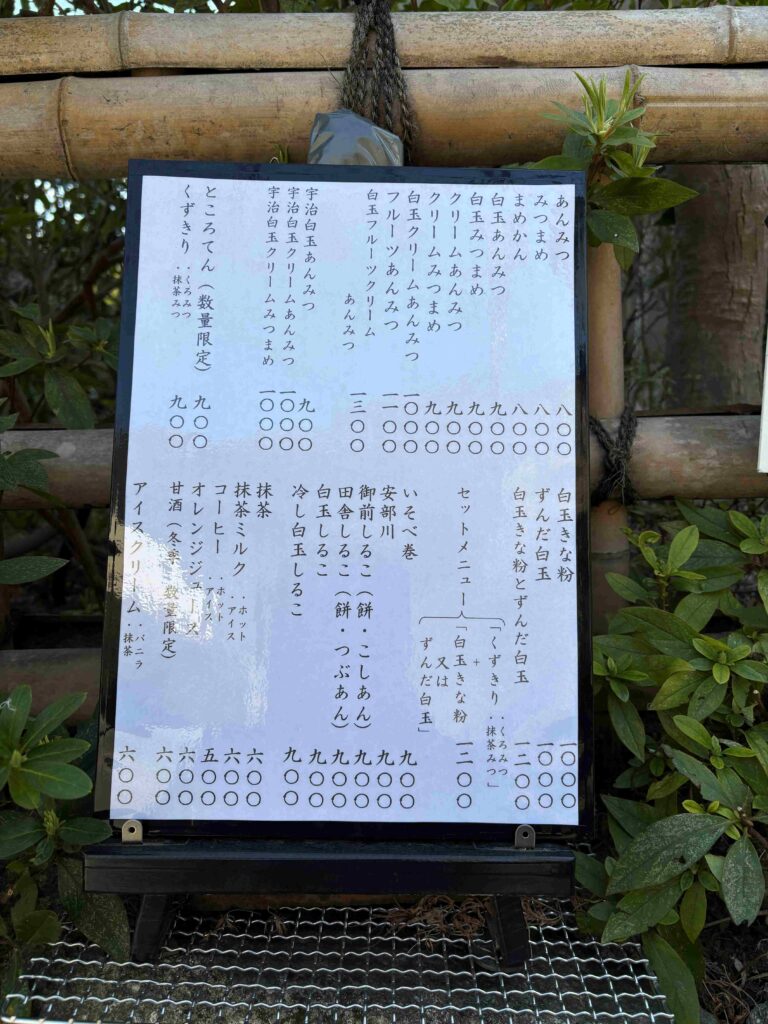 あんみつ 八〇〇
みつまめ 八〇〇
まめかん 八〇〇
白玉あんみつ 九〇〇
白玉みつまめ 九〇〇
クリームあんみつ 九〇〇
クリームみつまめ 九〇〇
白玉クリームあんみつ 一〇〇〇
フルーツあんみつ 一一〇〇
白玉フルーツクリーム
あんみつ 一三〇〇
宇治白玉あんみつ 九〇〇
宇治白玉クリームあんみつ 一〇〇〇
宇治白玉クリームみつまめ 一〇〇〇
ところてん（数量限定） 九〇〇
くずきり ・くろみつ ・抹茶みつ 九〇〇
白玉きな粉 一〇〇〇
ずんだ白玉 一〇〇〇
白玉きな粉とずんだ白玉 一二〇〇
セットメニュー
「くずきり ・くろみつ ・抹茶みつ」
+
「白玉きな粉
又は
ずんだ白玉」
一二〇〇
いそべ巻 九〇〇
安部川 九〇〇
御前しるこ（餅・こしあん） 九〇〇
田舎しるこ（餅・つぶあん） 九〇〇
白玉しるこ 九〇〇
冷し白玉しるこ 九〇〇
抹茶 六〇〇
抹茶ミルク ・ホット ・アイス 六〇〇
コーヒー ・ホット ・アイス 五〇〇
オレンジジュース 六〇〇
甘酒（冬季 数量限定） 六〇〇
アイスクリーム ・バニラ ・抹茶 六〇〇